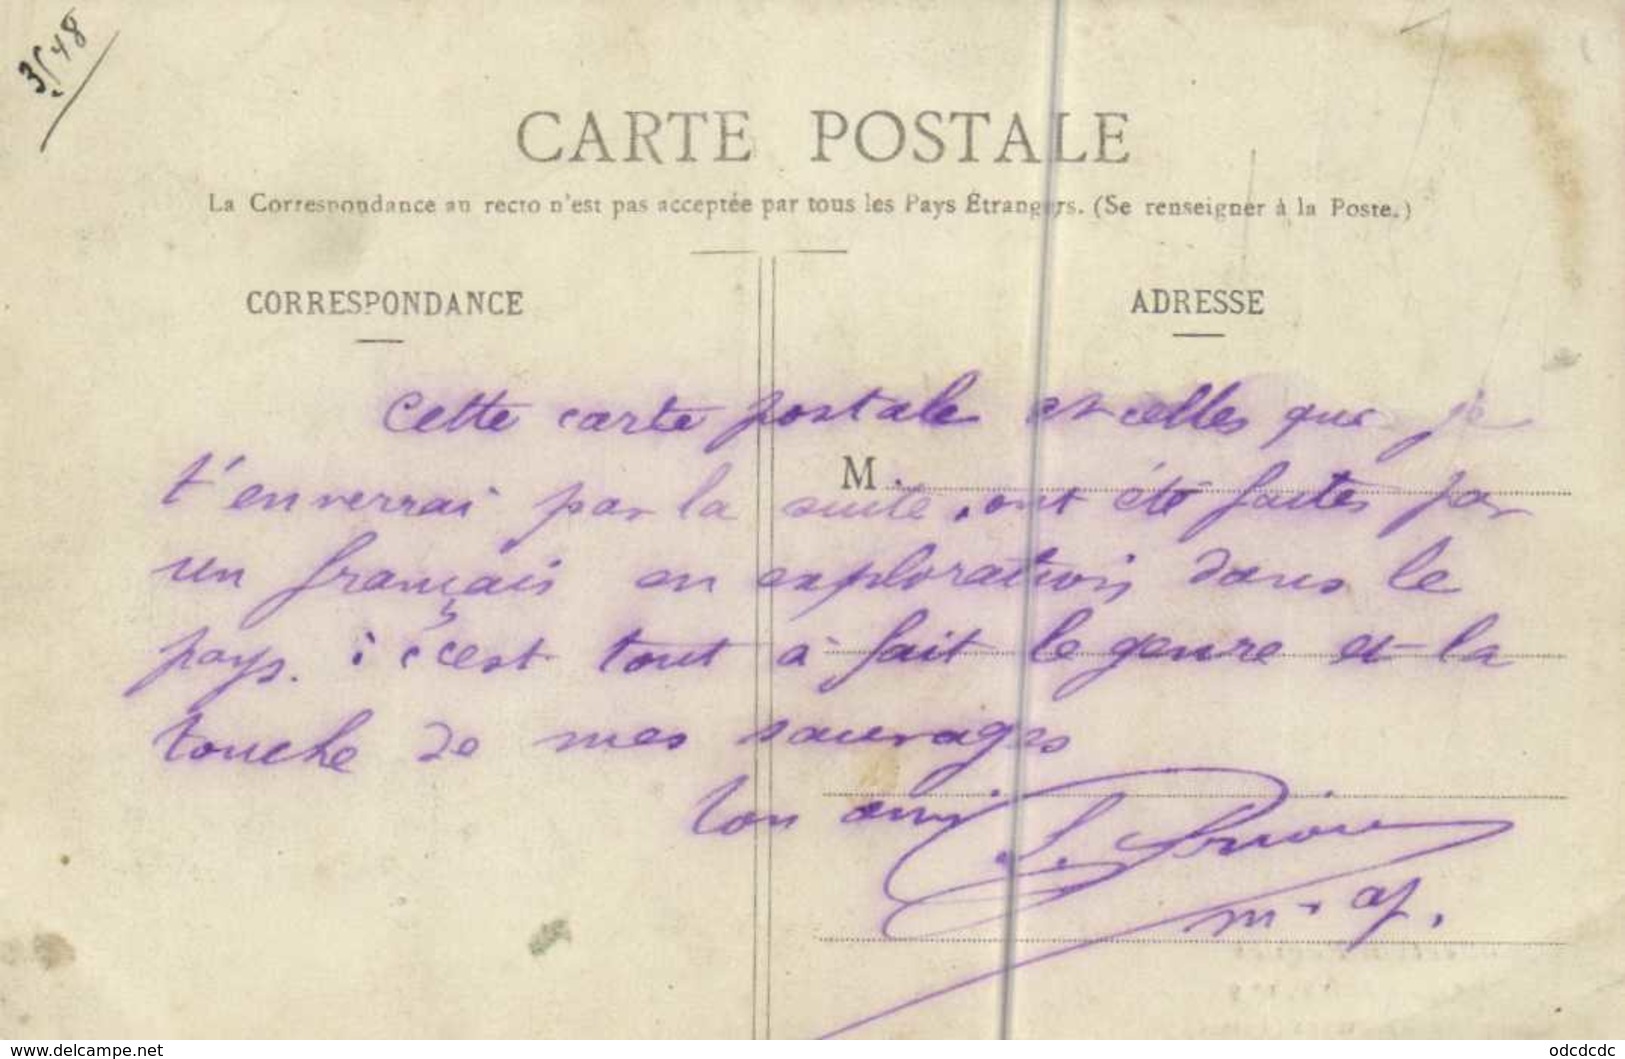 3548
CARTE POSTALE
La Correspondance au recto n'est pas acceptée par tous les Pays Étrangers. (Se renseigner à la Poste.)
CORRESPONDANCE
ADRESSE
M.
Cette carte postale et celles que je
t'enverrai par la suite, ont été faites par
un français en exploration dans le
pays. : c'est tout à fait le genre et la
touche de mes sauvages
ton ami
m. ap.
www.delcampe.net
odcdcdc